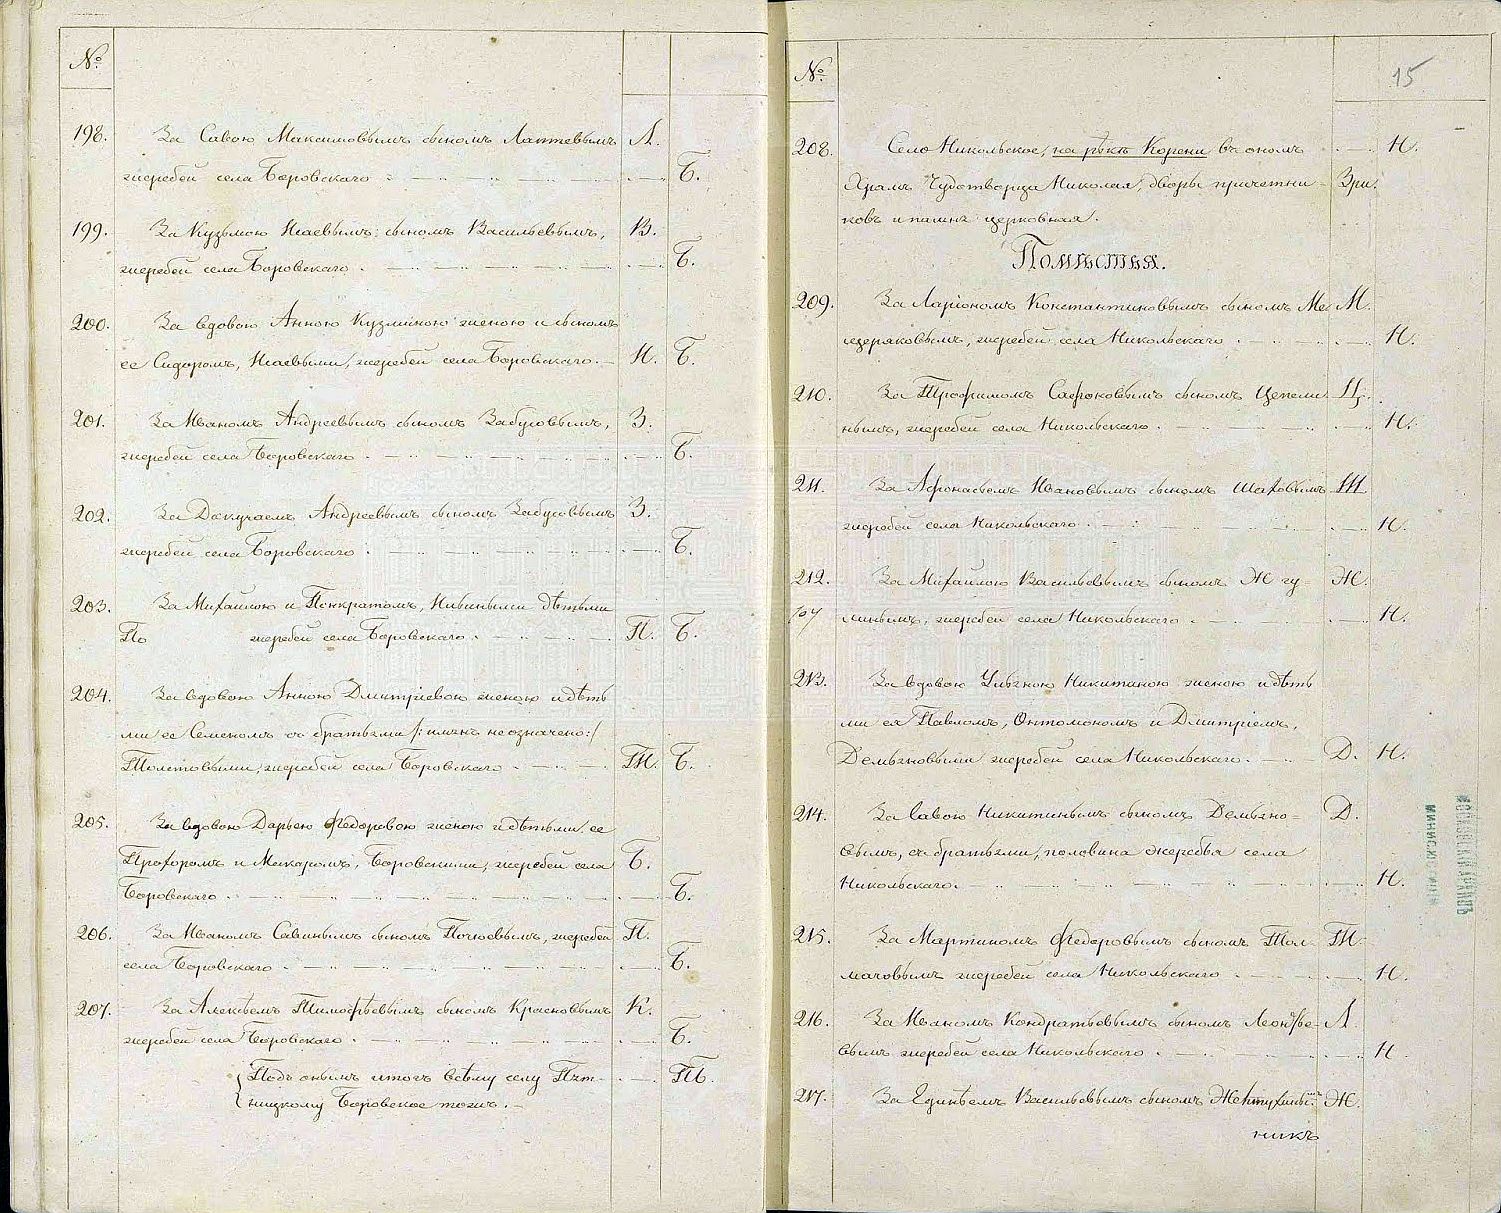 №
198. За Савою Максимовымъ сыномъ Лаптевымъ Л.
жеребей села Боровскаго Б.
199. За Кузьмою Исаевымъ сыномъ Васильевымъ, В.
жеребей села Боровскаго Б.
200. За вдовою Анною Кузминою женою и сыномъ
ее Сидоромъ, Исаевыми, жеребей села Боровскаго. И. Б.
201. За Иваномъ Андреевымъ сыномъ Забусовымъ, З.
жеребей села Боровскаго Б.
202. За Докучаемъ Андреевымъ сыномъ Забусовымъ З.
жеребей села Боровскаго Б.
203. За Михайлою и Понкратомъ, Ивиными дѣтьми
По жеребей села Боровскаго П. Б.
204. За вдовою Анною Дмитріевою женою и дѣть
ми ее Семеномъ съ братьями /:имянъ не означено:/
Толстовыми, жеребей села Боровскаго Т. Б.
205. За вдовою Дарьею Федоровою женою и дѣтьми ее
Прохоромъ и Макаромъ, Боровскими, жеребей села Б.
Боровскаго Б.
206. За Иваномъ Савинымъ сыномъ Почуевымъ, жеребей П.
села Боровскаго Б.
207. За Алексѣемъ Тимофѣевымъ сыномъ Красновымъ К.
жеребей села Боровскаго Б.
Подъ онымъ итогъ всему селу Пят- ПБ.
ницкому Боровское тожъ.
№
15
208. Село Никольское, на рѣкѣ Корени въ ономъ Н.
Храмъ Чудотворца Николая, дворы причетни- Зри.
ковъ и пашня церковная.
Помѣстья.
209. За Ларіономъ Константиновымъ сыномъ Ме М.
щеряковымъ, жеребей села Никольскаго Н.
210. За Трофимомъ Сафоновымъ сыномъ Цепели Ц.
нымъ, жеребей села Никольскаго Н.
211. За Афонасьемъ Ивановымъ сыномъ Шаховымъ Ш
жеребей села Никольскаго Н.
212. За Михайлою Васильевымъ сыномъ Жгу- Ж.
миннымъ, жеребей села Никольскаго Н.
213. За вдовою Ульяною Никитиною женою и дѣть
ми ея Павломъ, Онтомономъ и Дмитріемъ,
Демьяновыми жеребей села Никольскаго. Д. Н.
214. За Савою Никитинымъ сыномъ Демьяно= Д.
вымъ, съ братьями, половина жеребья села
Никольскаго. Н.
215. За Мартиномъ Федоровымъ сыномъ Тол- Т.
мачовымъ жеребей села Никольскаго Н.
216. За Иваномъ Кондратьевымъ сыномъ Леонтье- Л.
вымъ жеребей села Никольскаго Н
217. За Васильевымъ сыномъ Ж.
никъ